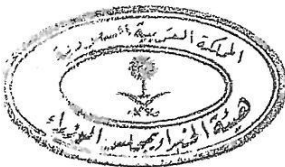 المملكة العربية السعودية
هيئة الخبراء بمجلس الوزراء